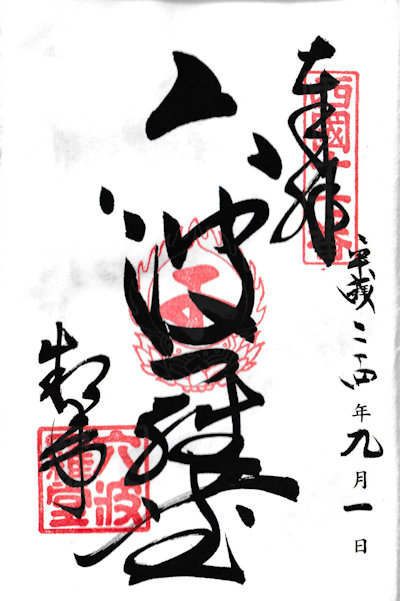 奉拝
西國十七番
平成二十四年九月一日
六波羅堂
六波
羅堂